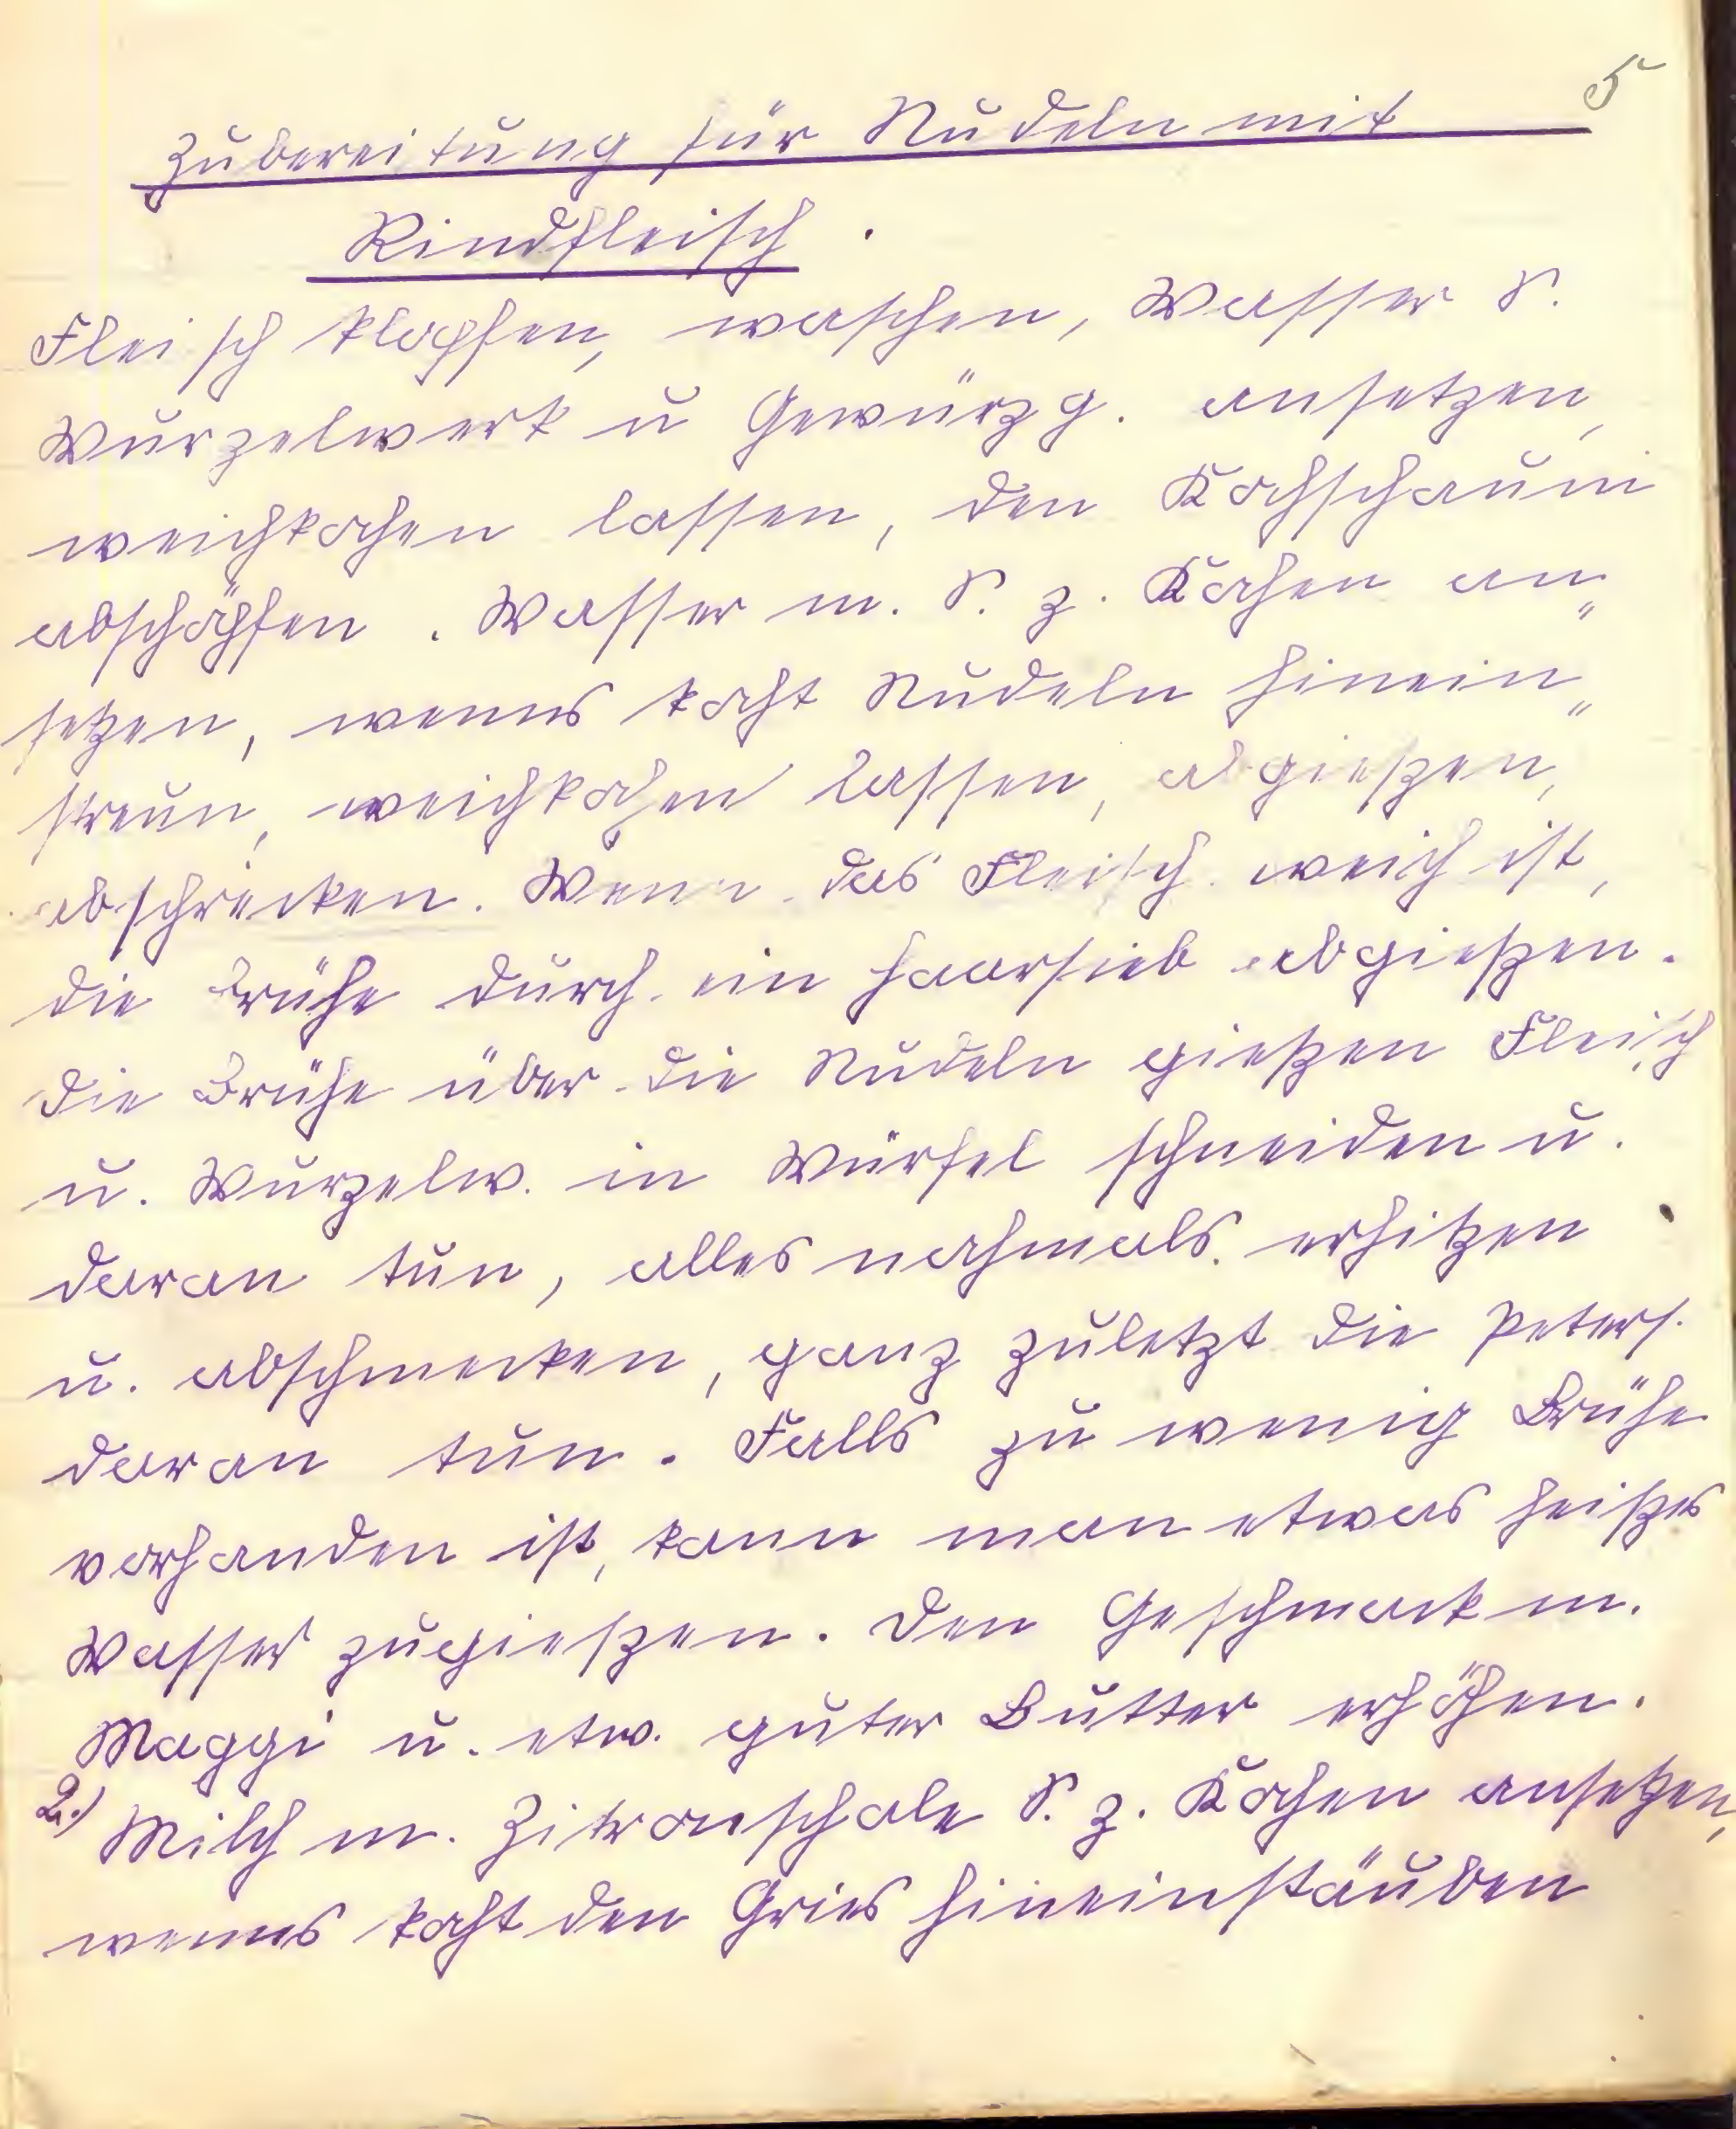 5
Zubereitung für Nudeln mit
Rindfleisch.
Fleisch klopfen, waschen, Wasser S.
Wurzelwerk u Gewürzg. ansetzen,
weichkochen lassen, den Kochschaum
abschöpfen. Wasser m. S. z. Kochen an„
setzen, wenns kocht Nudeln hinein„
streun, weichkochen lassen, abgießen,
abschrecken. Wenn das Fleisch weich ist,
die Brühe durch ein Haarsieb abgießen.
Die Brühe über die Nudeln gießen Fleisch
u. Wurzelw. in Würfel schneiden u.
daran tun, alles nochmals erhitzen
u. abschmecken, ganz zuletzt die Peters.
daran tun. Falls zu wenig Brühe
vorhanden ist, kann man etwas heißes
Wasser zugießen. Den Geschmack m.
Maggi u. etw. guter Butter erhöhen.
2.) Milch m. Zitronschale S. z. Kochen ansetzen,
wenns kocht den Gries hineinstäuben